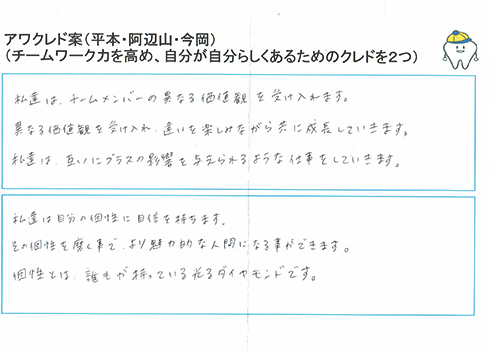 アワクレド案(平本・阿辺山・今岡)
(チームワーク力を高め、自分が自分らしくあるためのクレドを2つ)
私達は、チームメンバーの異なる価値観を受け入れます。
異なる価値観を受け入れ、違いを楽しみながら共に成長していきます。
私達は、互いにプラスの影響を与えられるような仕事をしていきます。
私達は自分の個性に自信を持ちます。
その個性を磨く事で、より魅力的な人間になる事ができます。
個性とは、誰もが持っている光るダイヤモンドです。